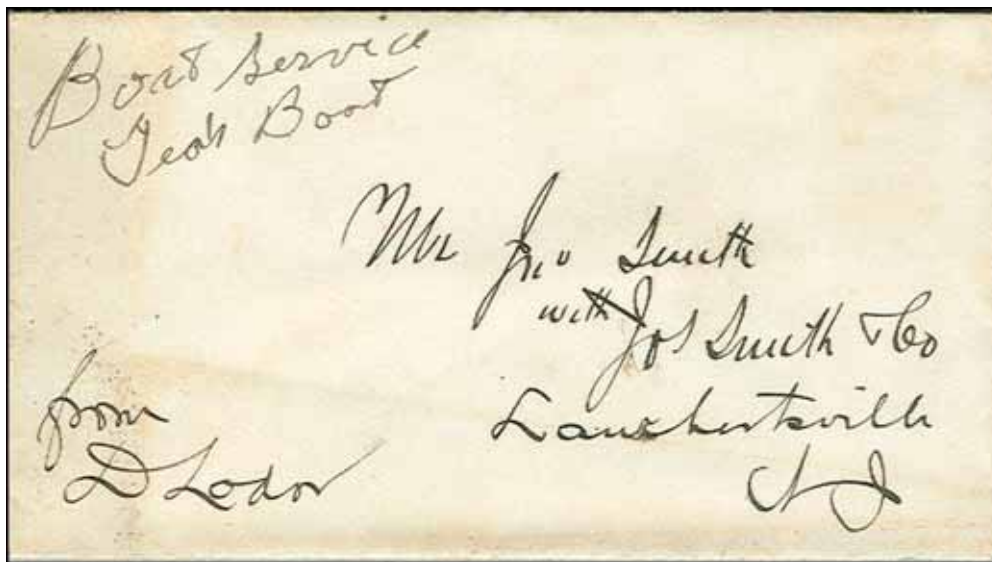 Boat Service
Boat
Mr Jno Smith
with Jos Smith & Co
Lambertsville
N J
from
D Lodor